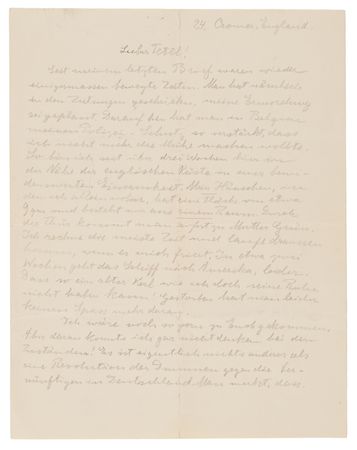 24. Cromer, England.
Lieber Tetel!
Seit meinem letzten Brief waren wieder
einigermassen bewegte Zeiten. Man hat nämlich
in den Zeitungen geschrieben, meine Ermordung
sei geplant. Darauf hin hat man in Belgien
meinen Polizei-Schutz so verstärkt, dass
ich nicht mehr die Mühe machen wollte.
So bin ich seit über drei Wochen hier in
der Nähe der englischen Küste in einer
Einsamkeit. Das Häuschen, in
dem ich allein wohne, hat eine Fläche von etwa
und besteht aus einem Raum. Durch
die Thür kommt man sofort zu Mutter Grün.
Ich rechne die meiste Zeit und laufe draussen
herum, wenn es mich friert. In etwa zwei
Wochen geht das Schiff nach Amerika, leider.
Dass so ein alter Kerl wie ich doch seine Ruhe
nicht haben kann! Gestorben hat man leider
keinen Spass mehr daran.
Ich wäre auch so gern zu Euch gekommen.
Aber daran konnte ich gar nicht denken bei den
Zuständen! Es ist eigentlich nichts anderes als
eine Revolution der Dummen gegen die Ver-
nünftigen in Deutschland. Man merkt, dass